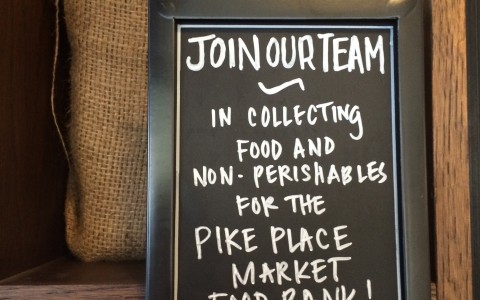 JOIN OUR TEAM
IN COLLECTING
FOOD AND
NON-PERISHABLES
FOR THE
PIKE PLACE
MARKET
FOOD BANK!